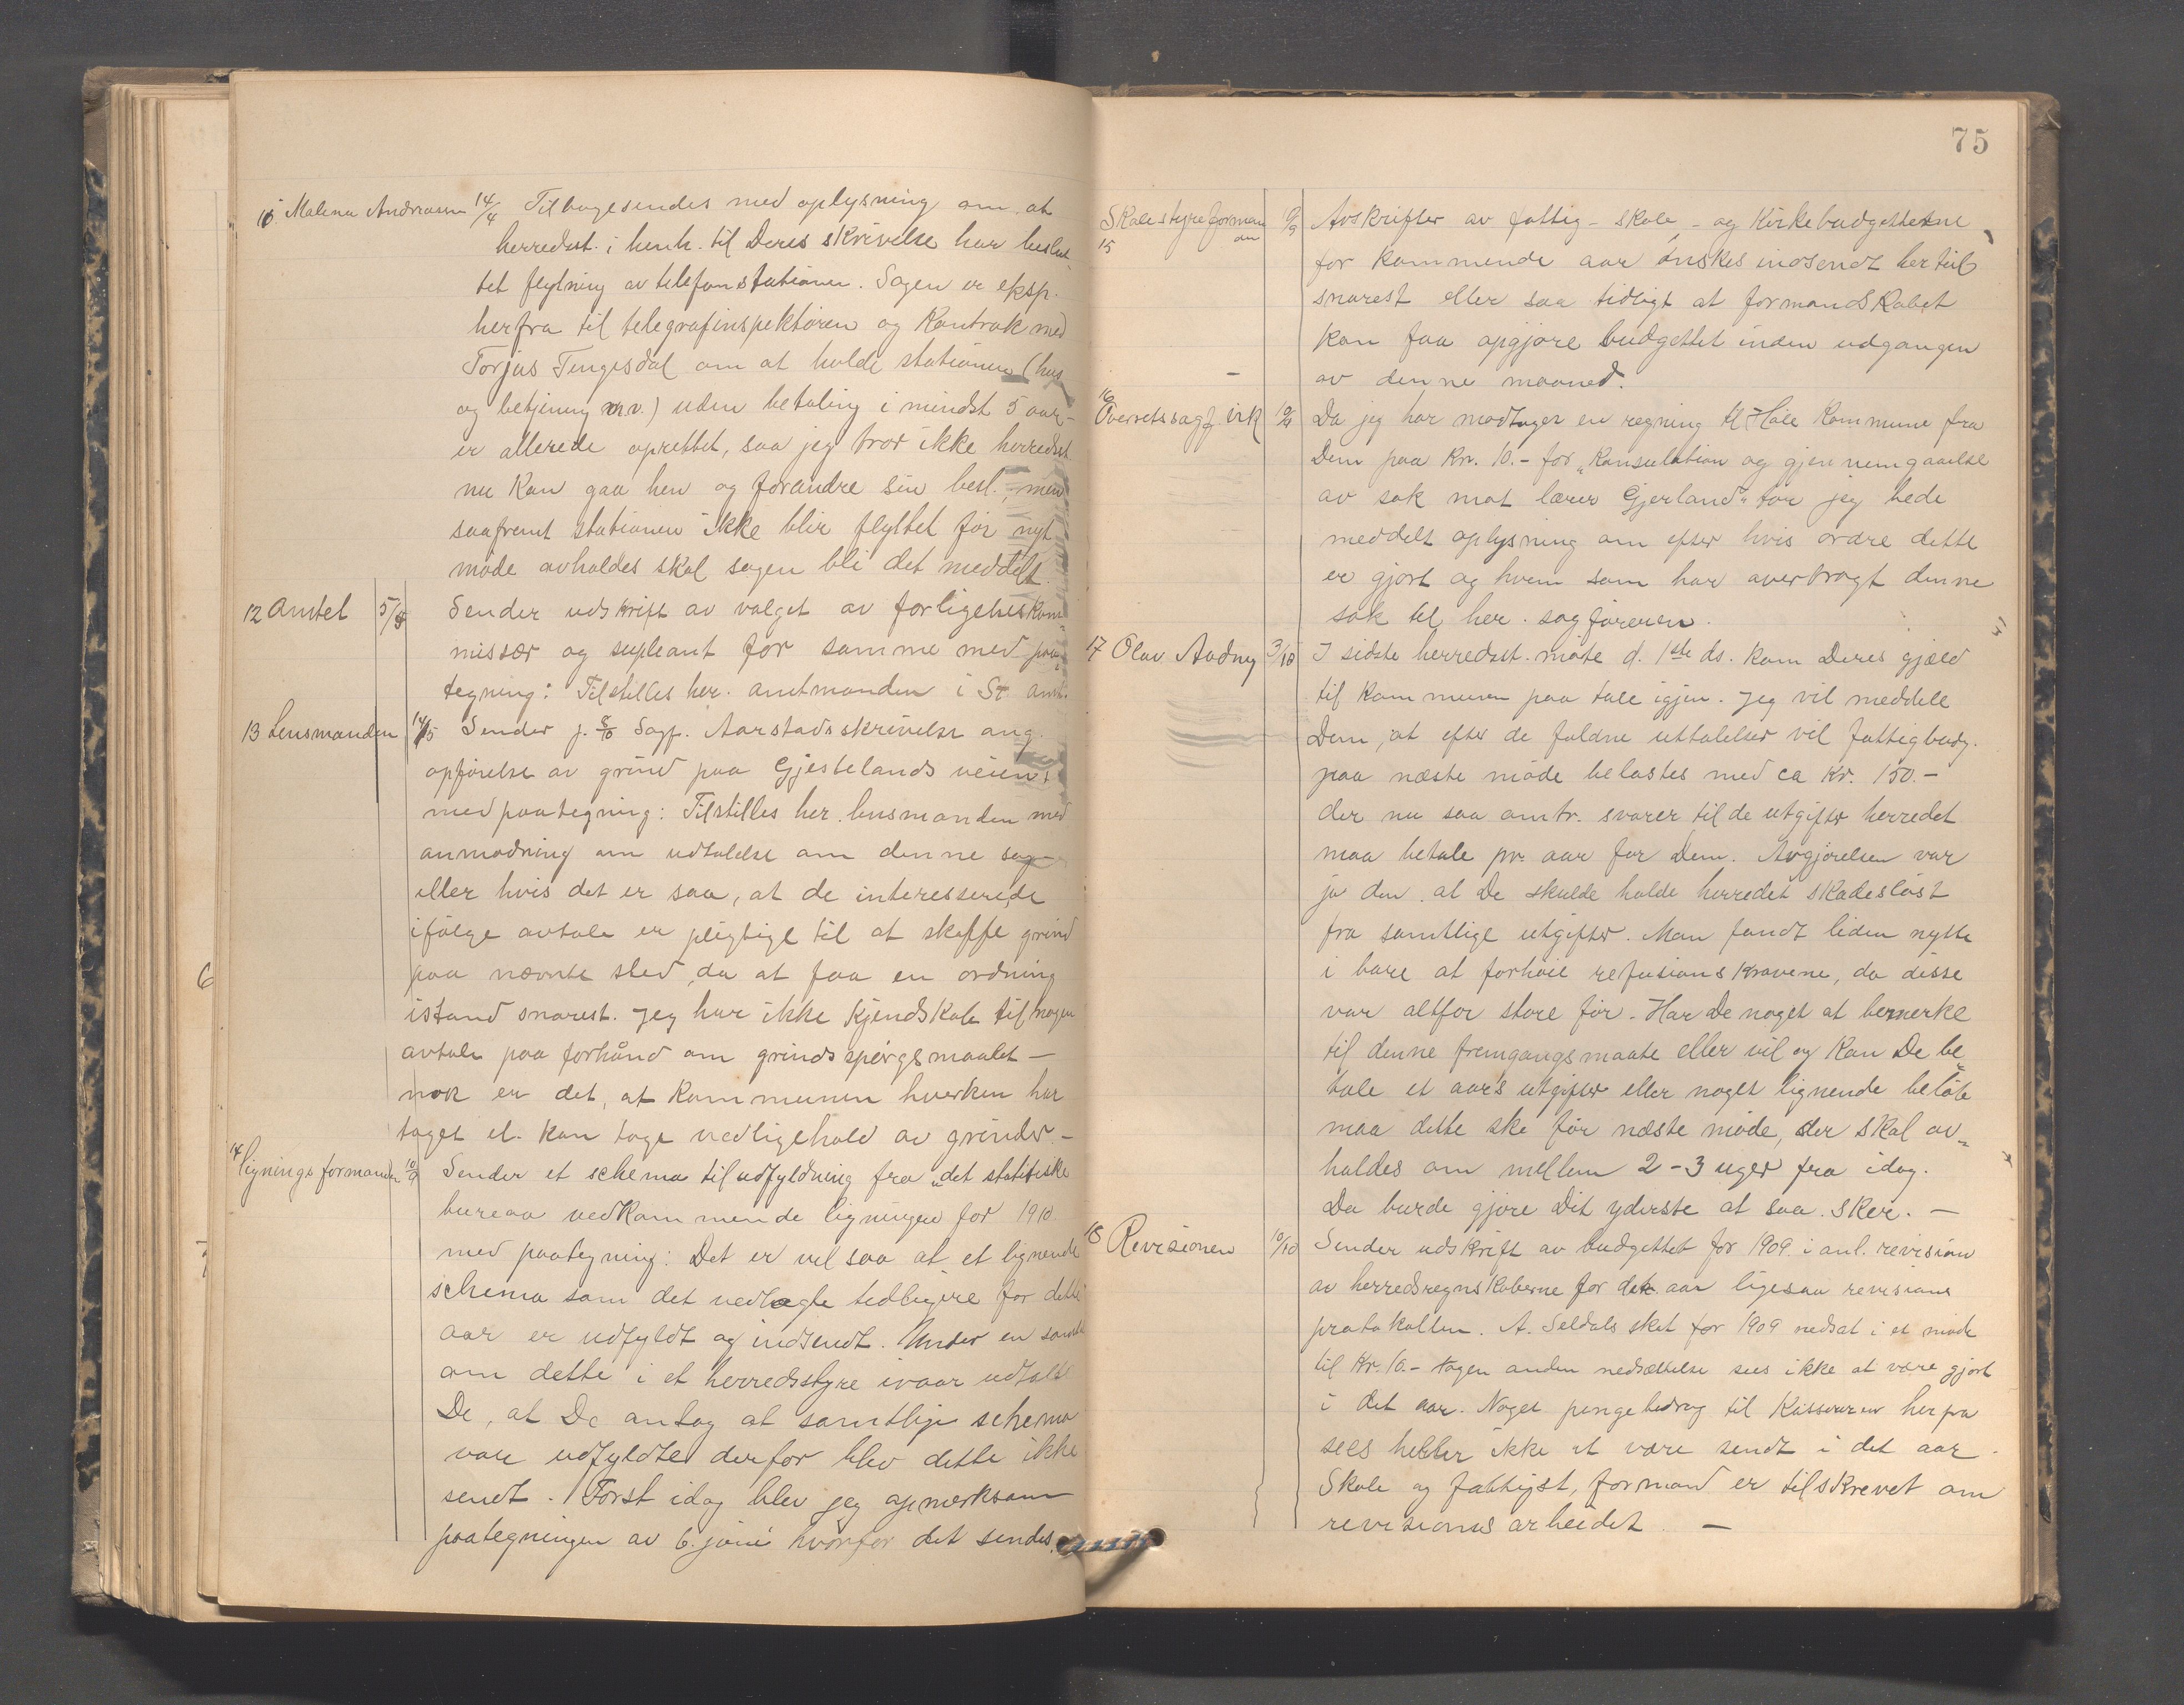 Malena Andreasen 14/4 Tilbagesendes med oplysning om at
herredsst. i henh. til Deres skrivelse har beslut
tet flytning av telefonstationen. Sagen er eksp.
herfra til telegrafinspektøren og Kontrak med
Torjus Tengesdal om at holde stationen (hus
og betjening m.v.) uden betaling i mindst 5 aar -
er allerede oprettet, saa jeg tror ikke herredsst
nu kan gaa hen og forandre sin besl., men
saafremt stationen ikke blir flyttet før nyt
møde avholdes skal sagen bli det meddelt.
12 Amtet 5/5 Sender udskrift av valget av forligelseskom
missær og supleant for samme med paa
tegning: Tilstilles her. amtmanden i St. amt.
13 Lensmanden 14/5 Sender j. 8/10 Sagf. Aarstads skrivelse ang.
opførelse av grind paa Gjestelands veien
med paategning: Tilstilles her. lensmanden med
anmodning om udtalelse om denne sag
eller hvis det er saa, at de interesserede
ifølge avtale er pligtige til at skaffe grind
paa nævnte sted, da at faa en ordning
istand snarest. Jeg har ikke Kjendskab til nogen
avtale paa forhånd om grindspørgsmaalet —
nok er det, at Kommunen hverken har
taget el. kan tage vedligehold av grinder. -
14 Ligningsformanden 10/9 Sender et schema til udfyldning fra "det statistiske
bureaa vedkommende ligningen for 1910.
med paategning: Det er vel saa at et lignende
schema som det vedlagte tidligere for dette
aar er udfyldt og indsendt. Under en samtale
om dette i et herredsstyre ivaar udtalte
De, at De antog at samtlige schema
vare udfyldte derfor blev dette ikke
sendt. Først idag blev jeg opmerksom
paategningen av 6. juni hvorfor det sendes.
75
Skolestyreformanden
15
9/9 Avskrifter av fattig- skole- og Kirkebudgetterne
for kommende aar ønskes indsendt hertil
snarest eller saa tidligt at formandskabet
kan faa opgjøre budgettet inden udgangen
av denne maaned.
16 Overretssagf. Eik 10/9 Da jeg har modtaget en regning til Hole Kommune fra
Dem paa Kr. 10.- for "Konsultation og gjennemgaaelse
av sak mot lærer Gjerland" tør jeg bede
meddelt oplysning om efter hvis ordre dette
er gjort og hvem som har overdragt denne
sak til her. sagføreren.
17 Olav Aadnøy 3/10 I sidste herredsst. møte d. 1ste ds. kom Deres gjæld
til kommunen paa tale igjen. Jeg vil meddele
Dem, at efter de faldne uttalelser vil fattigbudg.
paa næste møde belastes med ca Kr. 150.-
der nu saa omtr. svarer til de utgifter herredet
maa betale pr. aar for Dem. Avgjørelsen var
jo den at De skulde holde herredet skadesløst
fra samtlige utgifter. Man fandt liden nytte
i bare at forhøie refusionskravene, da disse
var altfor store før. Har De noget at bemerke
til denne fremgangsmaate eller vil og kan De be
tale et aar's utgifter eller noget lignende beløb
maa dette ske før næste møde, der skal av
holdes om mellem 2-3 uger fra idag.
Da burde gjøre Dit yderste at saa sker. —
18 Revisionen 10/10 Sender udskrift av budgettet for 1909 i anl. revision
av herredsregnskaberne for det aar ligesaa revisions
protokollen. A. Seldals skat for 1909 nedsat i et møde
til Kr. 10.- Nogen anden nedsættelse sees ikke at være gjort
i det aar. Noget pengebidrag til Kassereren herfra
sees heller ikke at være sendt i det aar.
Skole og fattigst. formand er tilskrevet om
revisionsarbeidet. —